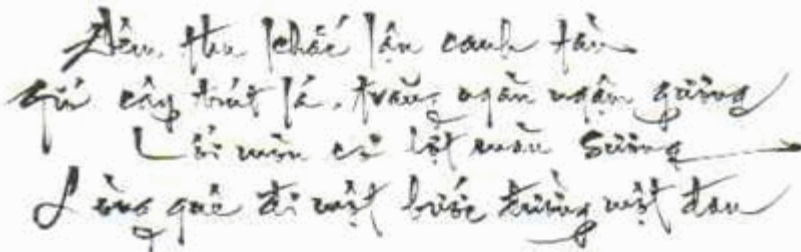 Đêm thu khắc lậu canh tàn
Gió cây trút lá, trăng ngàn ngậm gương
Lối mòn cỏ lợt màu sương
Lòng quê đi một bước đường một đau